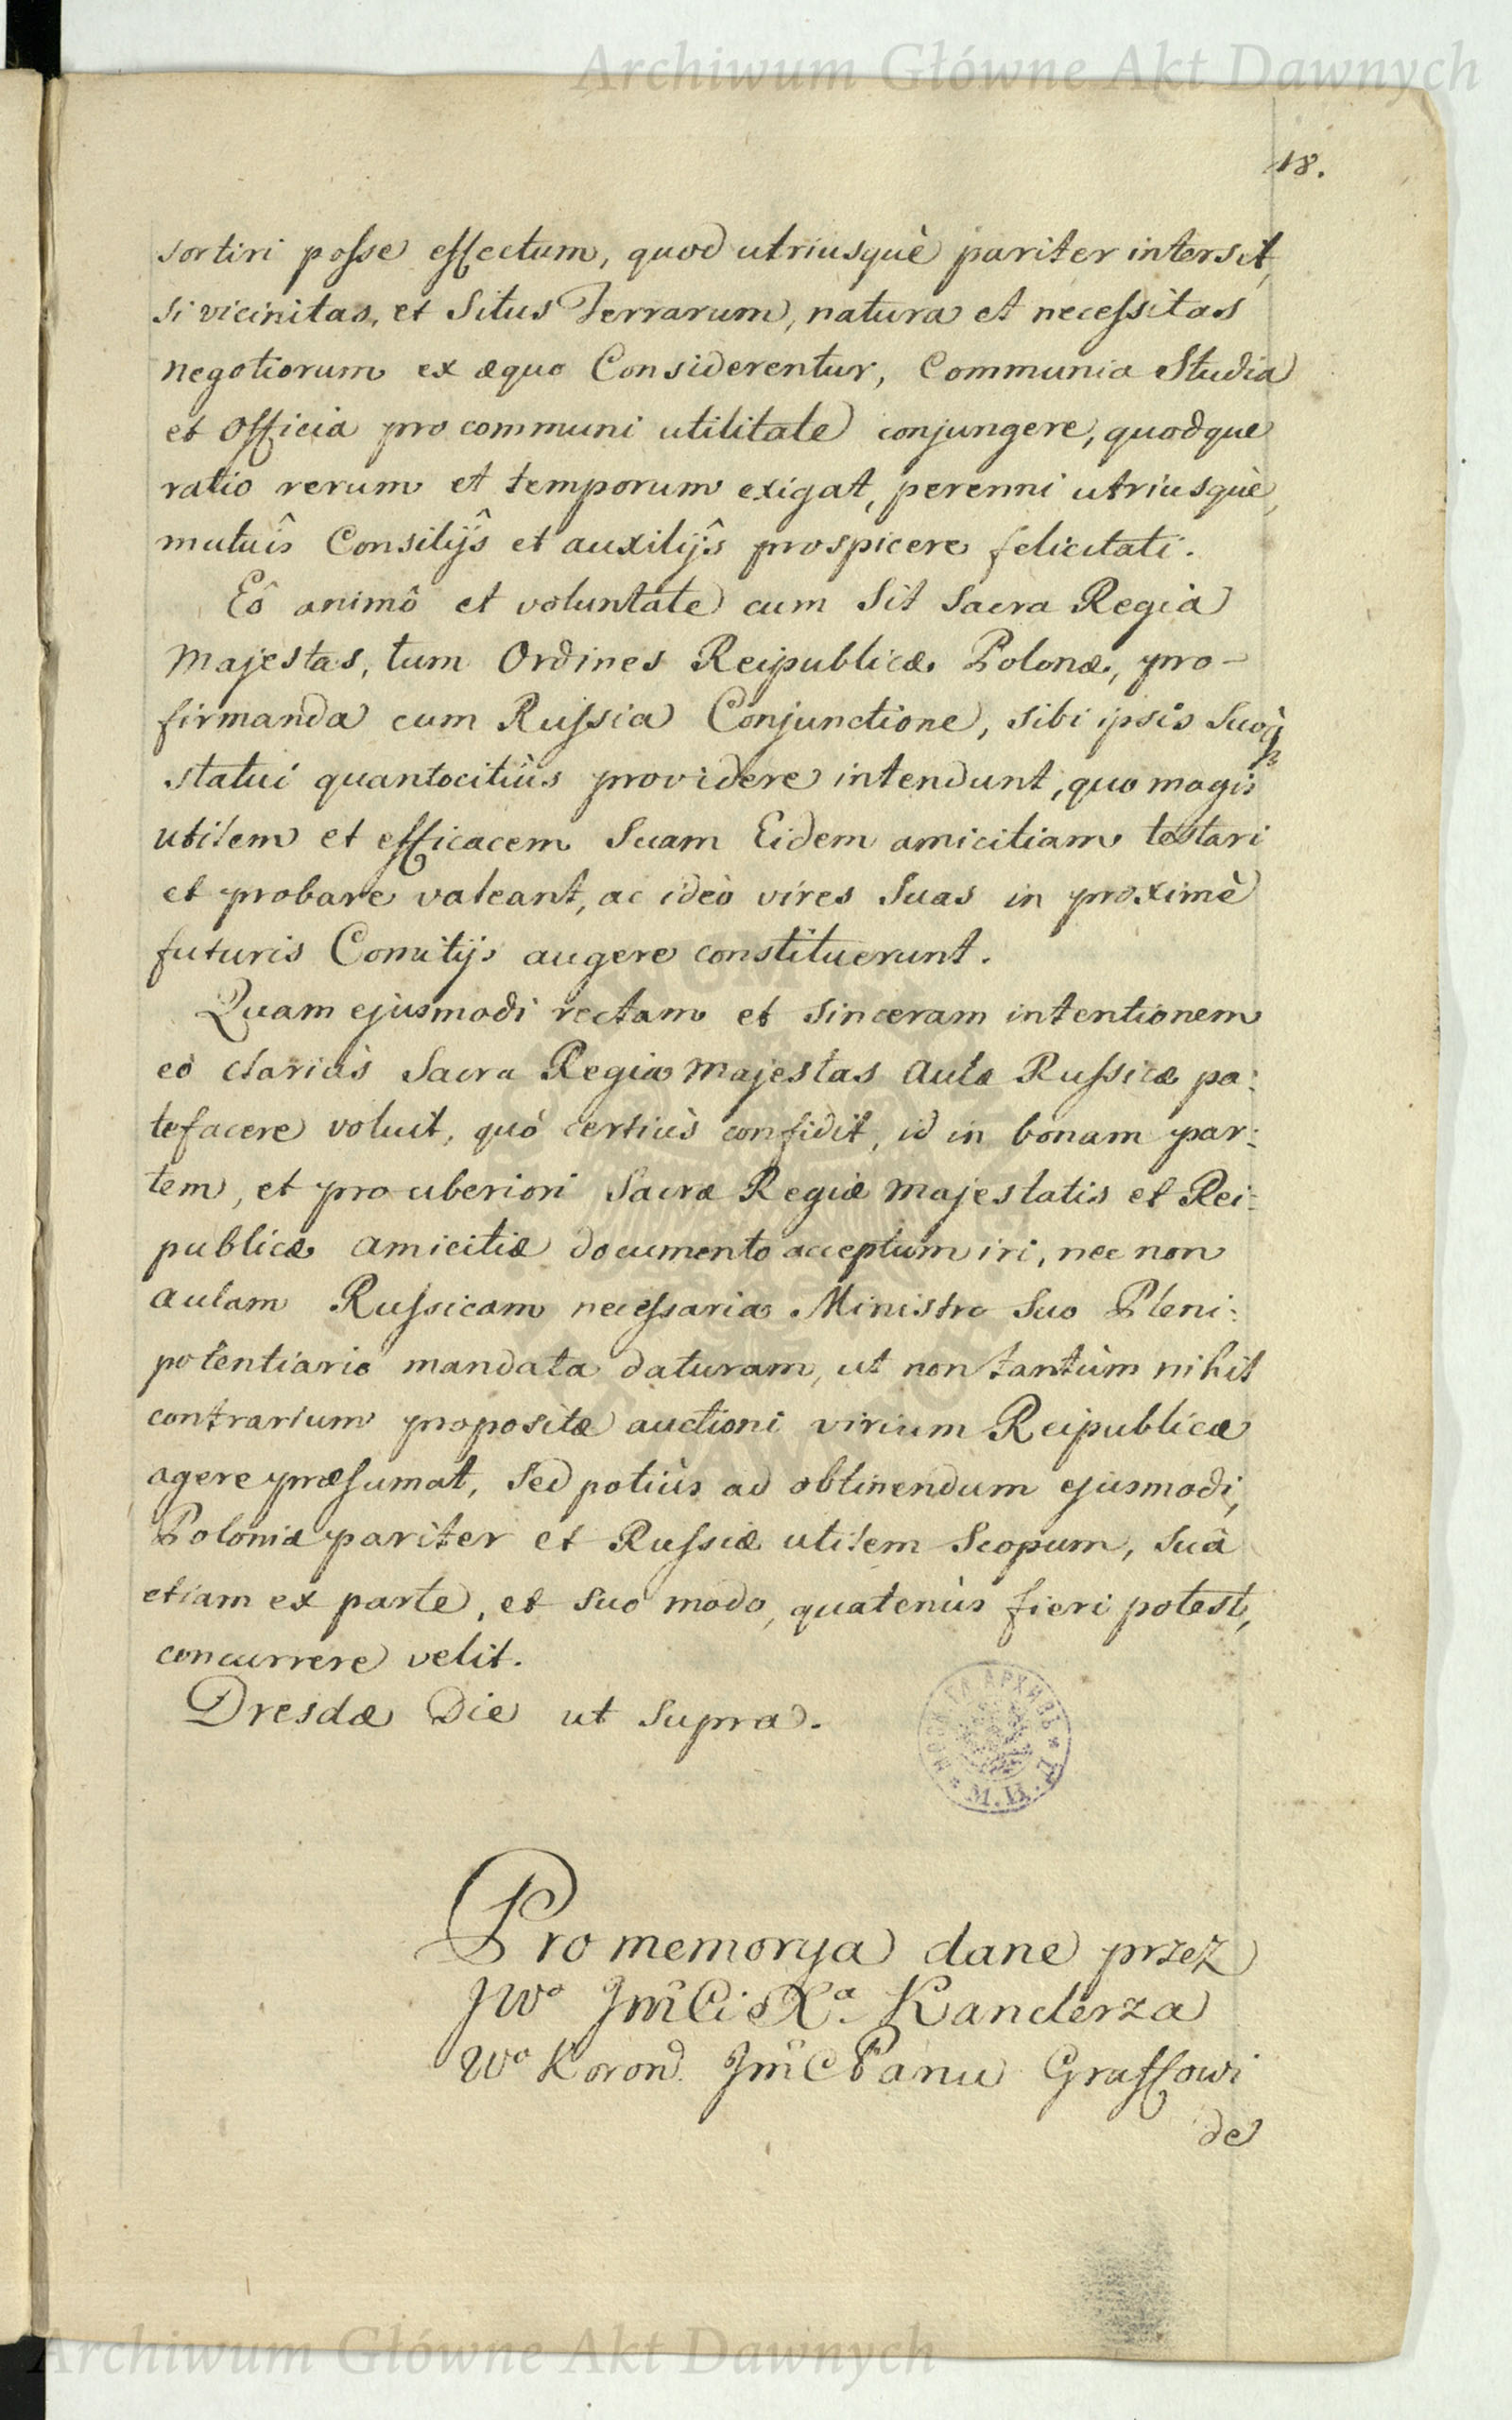 Archiwum Główne Akt Dawnych
18.
sortiri posse effectum, quod utriusquè pariter intersit,
si vicinitas, et Situs Terrarum, natura et necessitas
negotiorum ex æquo Considerentur, Communia Studia
et Officia pro communi utilitate conjungere, quodque
ratio rerum et temporum exigat, perenni utriusquè,
mutuîs Consilijs et auxilijs prospicere felicitati.
Eô animô et voluntate cum Sit Sacra Regia
Majestas, tum Ordines Reipublicæ Polonæ, pro-
firmanda cum Russia Conjunctione, sibi ipsis Suoq̀
statui quantocitiùs providere intendunt, quo magis
utilem et efficacem Suam Eidem amicitiam testari
et probare valeant, ac ideò vires Suas in proximè
futuris Comitijs augere constituerunt.
Quam ejusmodi rectam et sinceram intentionem
eò clariùs Sacra Regia Majestas Aulæ Russicæ pa:
tefacere voluit, quò certiùs confidit, id in bonam par:
tem, et pro uberiori Sacræ Regiæ Majestatis et Rei:
publicæ amicitiæ documento acceptum iri, nec non
Aulam Russicam necessaria Ministro Suo Pleni:
potentiario mandata daturam, ut non tantùm nihil
contrarium propositæ auctioni virium Reipublicæ
agere præsumat, Sed potiùs ad obtinendum ejusmodi,
Poloniæ pariter et Russiæ utilem Scopum, Suâ
etiam ex parte, et Suo modo, quatenùs fieri potest,
concurrere velit.
Dresdæ Die ut Supra.
АРХИВЪ
М.И.Д.
Pro memorya dane przez
JWo JmCi Xa Kanclerza
Wo Koron. JmC Panu Grassowi
de
Archiwum Główne Akt Dawnych